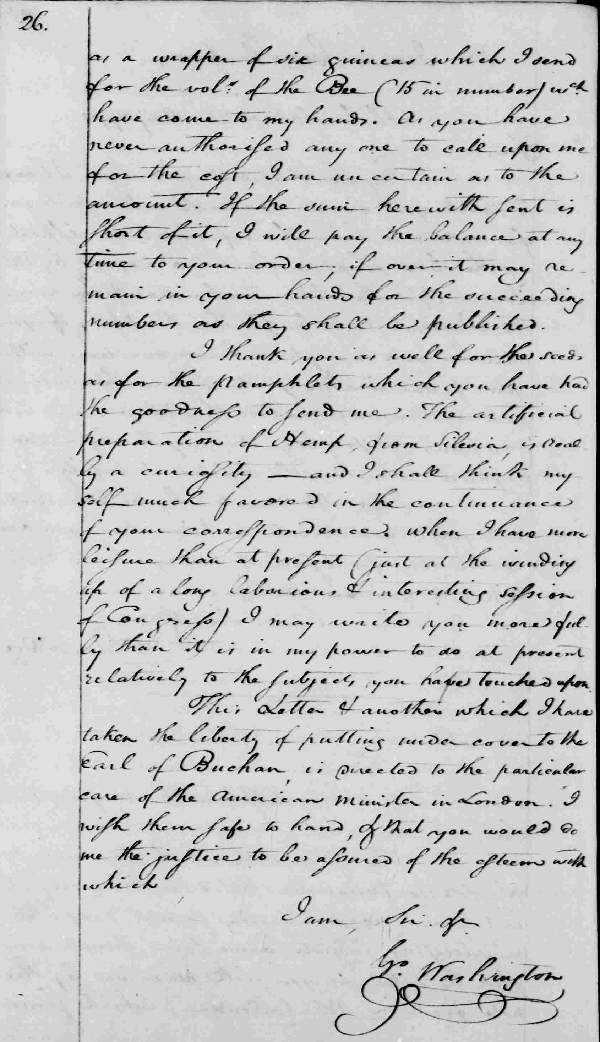 26.
as a wrapper of six guineas which I send
for the vols. of the Bee (15 in number) wch.
have come to my hands. As you have
never authorised any one to call upon me
for the cost, I am uncertain as to the
amount. If the sum herewith sent is
short of it, I will pay the balance at any
time to your order; if over it may re-
main in your hands for the succeeding
numbers as they shall be published.
I thank you as well for the seeds
as for the pamphlets which you have had
the goodness to send me. The artificial
preparation of Hemp, from Silesia, is real
ly a curiosity — and I shall think my
self much favored in the continuance
of your correspondence. When I have more
leisure than at present (just at the winding
up of a long laborious & interesting session
of Congress) I may write you more ful-
ly than it is in my power to do at present
relatively to the subjects you have touched upon.
This Letter & another which I have
taken the liberty of putting under cover to the
Earl of Buchan, is directed to the particular
care of the American minister in London. I
wish them safe to hand, & that you would do
me the justice to be assured of the esteem with
which
I am, Sir. &.
Go. Washington